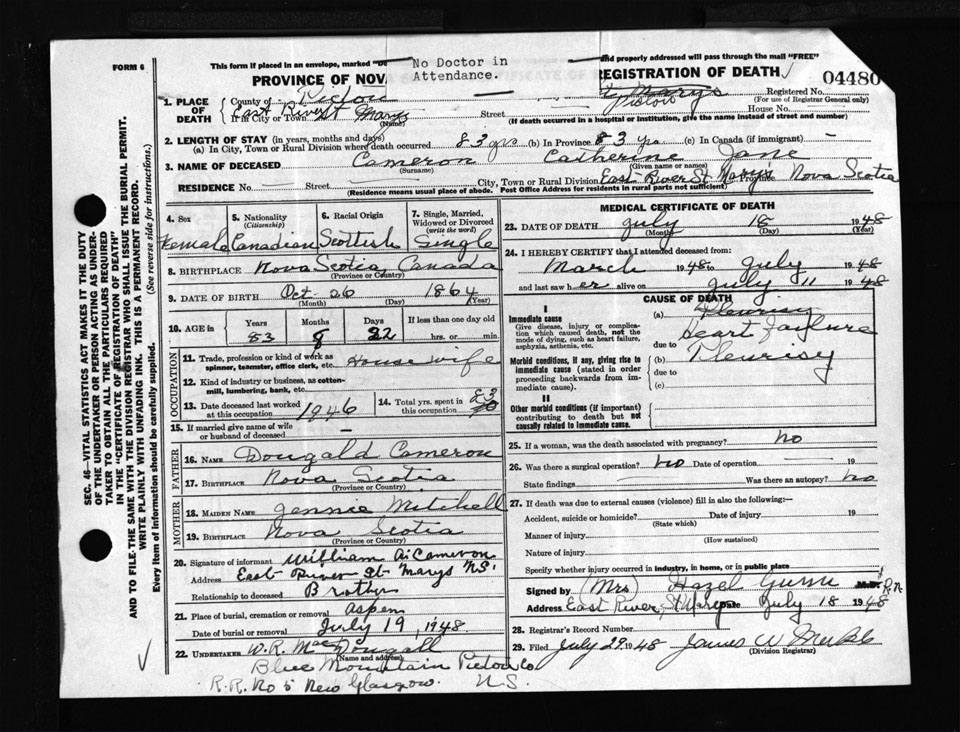 FORM 6
This form if placed in an envelope, marked
No Doctor in
Attendance.
and properly addressed will pass through the mail "FREE"
PROVINCE OF NOV
REGISTRATION OF DEATH
04480
1. PLACE OF DEATH
County of Pictou
If in City or Town East River St Marys (Name)
St Marys
Pictou
Street
Registered No.
(For use of Registrar General only)
House No.
(If death occurred in a hospital or institution, give the name instead of street and number)
2. LENGTH OF STAY (in years, months and days)
(a) In City, Town or Rural Division where death occurred 83 yrs (b) In Province 83 yrs (c) In Canada (if immigrant) —
3. NAME OF DECEASED Cameron Catherine Jane
(Surname) (Given name or names)
RESIDENCE No. Street City, Town or Rural Division East River St. Marys Province Nova Scotia
(Residence means usual place of abode. Post Office Address for residents in rural parts not sufficient)
4. Sex Female
5. Nationality (Citizenship) Canadian
6. Racial Origin Scottish
7. Single, Married, Widowed or Divorced (write the word) Single
8. BIRTHPLACE Nova Scotia, Canada
(Province or Country)
9. DATE OF BIRTH Oct 26 1864
(Month) (Day) (Year)
10. AGE in Years 83 Months 8 Days 22 If less than one day old hrs. or min.
OCCUPATION
11. Trade, profession or kind of work as spinner, teamster, office clerk, etc. House wife
12. Kind of industry or business, as cotton-mill, lumbering, bank, etc.
13. Date deceased last worked at this occupation 1946
14. Total yrs. spent in this occupation
15. If married give name of wife or husband of deceased —
FATHER
16. NAME Dougald Cameron
17. BIRTHPLACE Nova Scotia
(Province or Country)
MOTHER
18. MAIDEN NAME Jennie Mitchell
19. BIRTHPLACE Nova Scotia
(Province or Country)
20. Signature of informant William A. Cameron
Address East River St Marys N.S.
Relationship to deceased Brother
21. Place of burial, cremation or removal Aspen
Date of burial or removal July 19, 1948.
22. UNDERTAKER W.R. MacDougall
(Name and address)
Blue Mountain Pictou Co
R.R. No 5 New Glasgow. N.S.
MEDICAL CERTIFICATE OF DEATH
23. DATE OF DEATH July 18 1948
(Month) (Day) (Year)
24. I HEREBY CERTIFY that I attended deceased from:
March 1948 to July 1948
and last saw her alive on July 11 1948
CAUSE OF DEATH
I
Immediate cause
Give disease, injury or complication which caused death, not the mode of dying, such as heart failure, asphyxia, asthenia, etc.
(a) Pleurisy
Heart failure
due to
Morbid conditions, if any, giving rise to immediate cause (stated in order proceeding backwards from immediate cause).
(b) Pleurisy
due to
(c)
II
Other morbid conditions (if important) contributing to death but not causally related to immediate cause.
25. If a woman, was the death associated with pregnancy? no
26. Was there a surgical operation? No Date of operation — 19
State findings — Was there an autopsy? No
27. If death was due to external causes (violence) fill in also the following:—
Accident, suicide or homicide? Date of injury 19
(State which)
Manner of injury
(How sustained)
Nature of injury
Specify whether injury occurred in industry, in home, or in public place
Signed by (Mrs) Hazel Gunn M.D. R.N.
Address East River, St Marys Date July 18 1948
28. Registrar's Record Number
29. Filed July 29 1948 James W
(Division Registrar)
SEC. 46—VITAL STATISTICS ACT MAKES IT THE DUTY
OF THE UNDERTAKER OR PERSON ACTING AS UNDER-
TAKER TO OBTAIN ALL THE PARTICULARS REQUIRED
IN THE "CERTIFICATE OF REGISTRATION OF DEATH"
AND TO FILE THE SAME WITH THE DIVISION REGISTRAR WHO SHALL ISSUE THE BURIAL PERMIT.
WRITE PLAINLY WITH UNFADING INK. THIS IS A PERMANENT RECORD.
Every item of information should be carefully supplied. (See reverse side for instructions.)